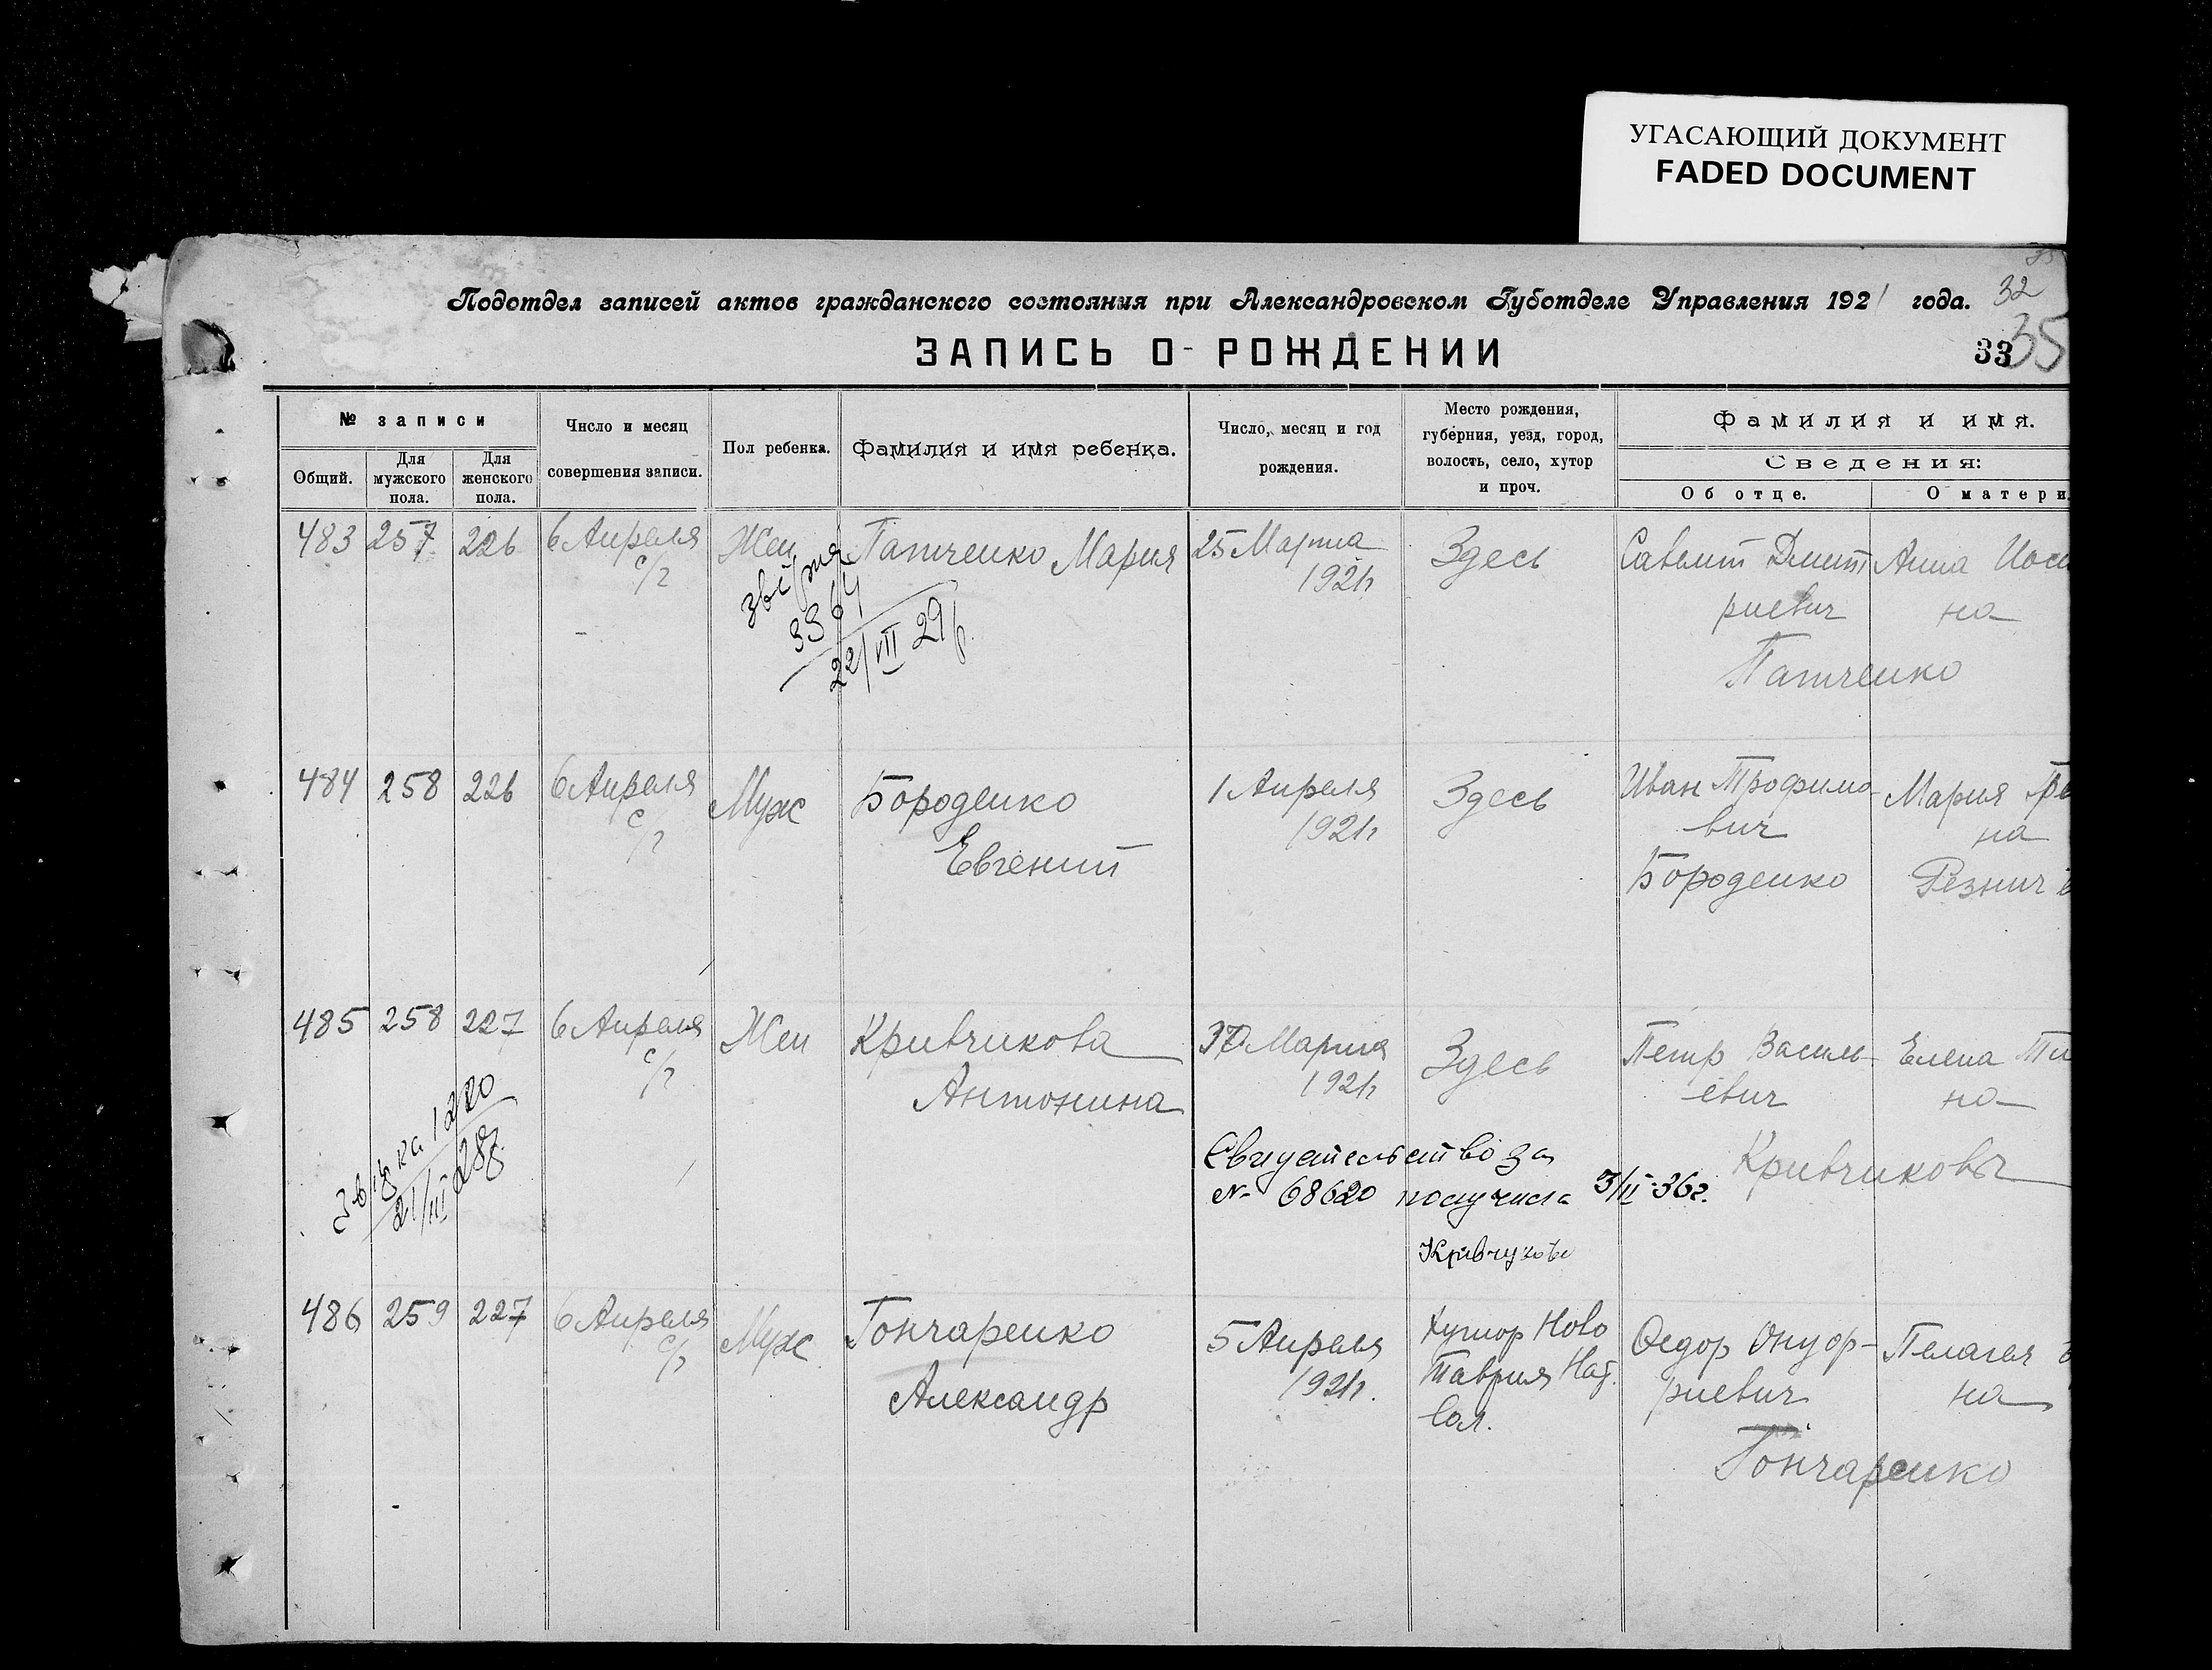 УГАСАЮЩИЙ ДОКУМЕНТ
FADED DOCUMENT
Подотдел записей актов гражданского состояния при Александровском Губотделе Управления 1921 года.
32
ЗАПИСЬ О РОЖДЕНИИ
33
35
№ записи
Общий.
Для мужского пола.
Для женского пола.
Число и месяц совершения записи.
Пол ребенка.
Фамилия и имя ребенка.
Число, месяц и год рождения.
Место рождения, губерния, уезд, город, волость, село, хутор и проч.
Фамилия и имя.
Сведения:
Об отце.
О матери.
483 257 226 6 Апреля с/г Жен Патченко Мария 25 Марта 1921г Здесь
Дмит
риевич
Анна
на
Патченко
3364
22/VII 29р.
484 258 226 6 Апреля с/г Муж Бороденко
Евгений
1 Апреля 1921г Здесь
Иван Трофимо-
вич
Бороденко
Мария
на
485 258 227 6 Апреля с/г Жен Кривчикова
Антонина
Марта 1921г Здесь
Петр Василь-
евич
Елена Ти
на
Кривчиковы
1220
21/III 28
Свидетельство за
№ 68620 получила 3/II-36г.
486 259 227 6 Апреля с/г Муж Гончаренко
Александр
5 Апреля 1921г.
Хутор Ново
Таврия
вол.
Федор Онуф-
риевич
Пелагея
на
Гончаренко